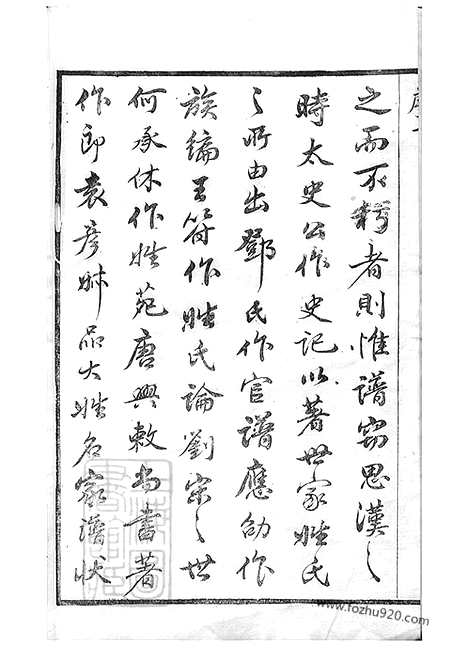 之而不朽者則惟譜竊思漢之
時太史公作史記以著世家姓氏
之所由出鄧氏作官譜應劭作
族編王符作姓氏論劉宋之世
何承休作姓苑唐興敕尚書著
作郎袁彥姊品大姓名家譜狀
www.fozhu920.com